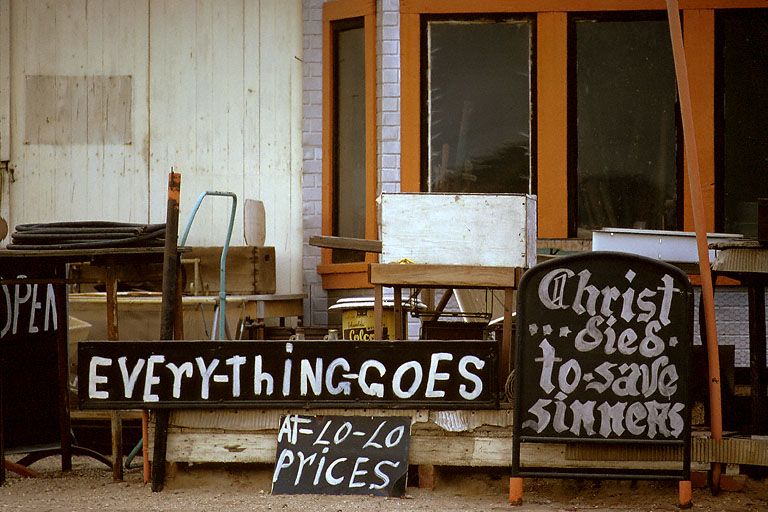 OPEN
EVERY-THING-GOES
AT-LO-LO
PRICES
Christ
...died.
to-save
sinners